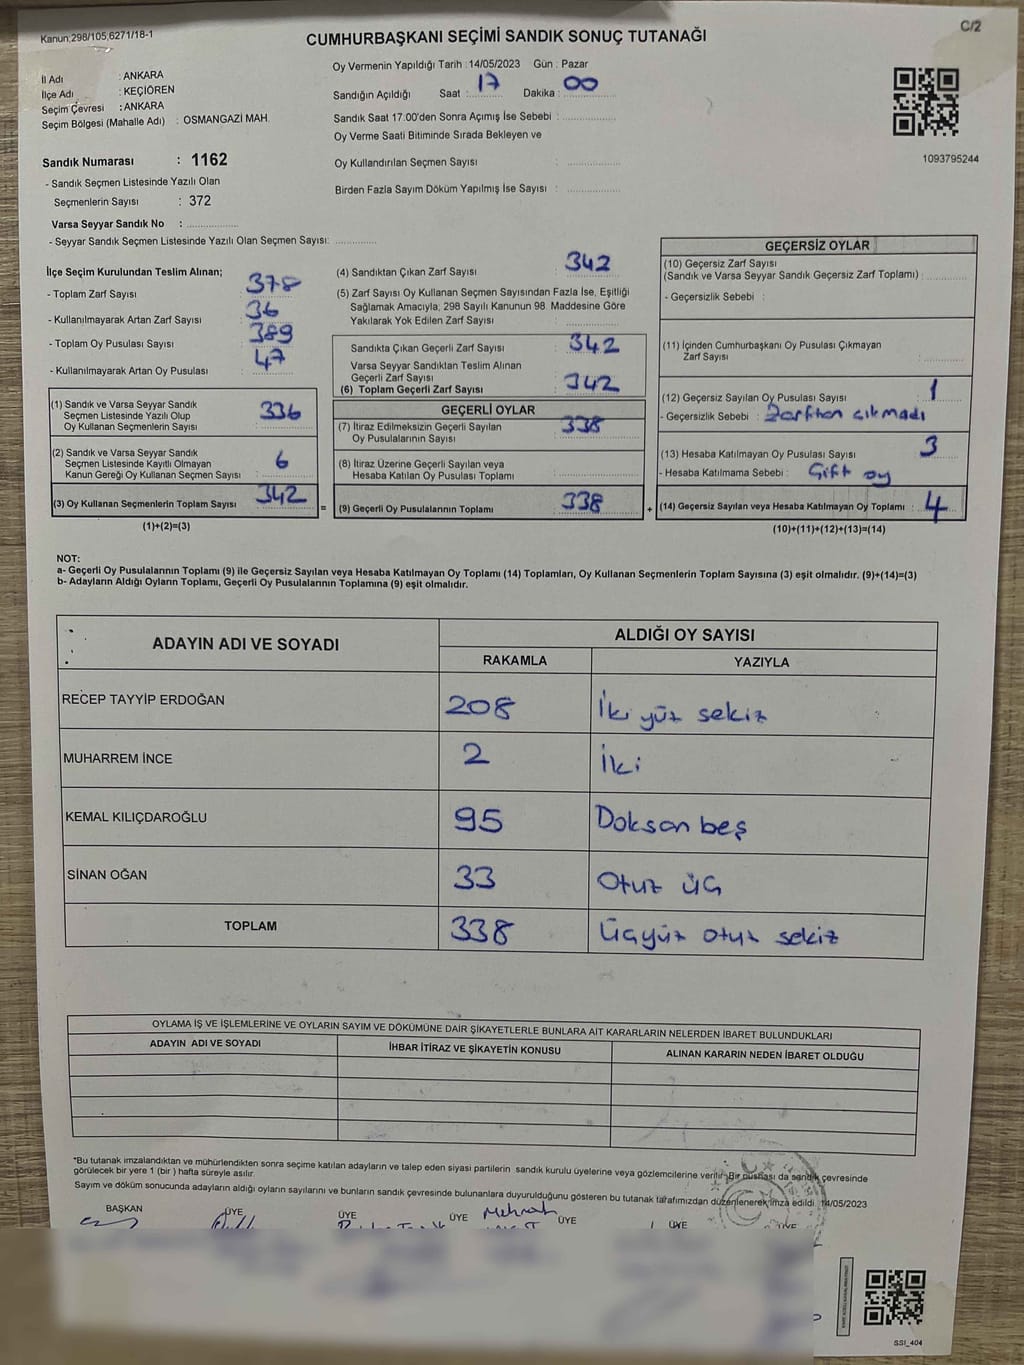 Kanun,298/105,6271/18-1
C/2
CUMHURBAŞKANI SEÇİMİ SANDIK SONUÇ TUTANAĞI
İl Adı : ANKARA
İlçe Adı : KEÇİÖREN
Seçim Çevresi : ANKARA
Seçim Bölgesi (Mahalle Adı) : OSMANGAZİ MAH.
Sandık Numarası : 1162
- Sandık Seçmen Listesinde Yazılı Olan
Seçmenlerin Sayısı : 372
Varsa Seyyar Sandık No :
- Seyyar Sandık Seçmen Listesinde Yazılı Olan Seçmen Sayısı:
Oy Vermenin Yapıldığı Tarih :14/05/2023 Gün : Pazar
Sandığın Açıldığı Saat : 17 Dakika : 00
Sandık Saat 17:00'den Sonra Açımış İse Sebebi :
Oy Verme Saati Bitiminde Sırada Bekleyen ve
Oy Kullandırılan Seçmen Sayısı :
Birden Fazla Sayım Döküm Yapılmış İse Sayısı :
1093795244
İlçe Seçim Kurulundan Teslim Alınan;
- Toplam Zarf Sayısı : 378
- Kullanılmayarak Artan Zarf Sayısı : 36
- Toplam Oy Pusulası Sayısı : 389
- Kullanılmayarak Artan Oy Pusulası : 47
(1) Sandık ve Varsa Seyyar Sandık
Seçmen Listesinde Yazılı Olup
Oy Kullanan Seçmenlerin Sayısı : 336
(2) Sandık ve Varsa Seyyar Sandık
Seçmen Listesinde Kayıtlı Olmayan
Kanun Gereği Oy Kullanan Seçmen Sayısı : 6
(3) Oy Kullanan Seçmenlerin Toplam Sayısı : 342
(1)+(2)=(3)
(4) Sandıktan Çıkan Zarf Sayısı : 342
(5) Zarf Sayısı Oy Kullanan Seçmen Sayısından Fazla İse, Eşitliği
Sağlamak Amacıyla; 298 Sayılı Kanunun 98. Maddesine Göre
Yakılarak Yok Edilen Zarf Sayısı :
Sandıkta Çıkan Geçerli Zarf Sayısı : 342
Varsa Seyyar Sandıktan Teslim Alınan
Geçerli Zarf Sayısı :
(6) Toplam Geçerli Zarf Sayısı : 342
GEÇERLİ OYLAR
(7) İtiraz Edilmeksizin Geçerli Sayılan
Oy Pusulalarının Sayısı : 338
(8) İtiraz Üzerine Geçerli Sayılan veya
Hesaba Katılan Oy Pusulaları Toplamı :
= (9) Geçerli Oy Pusulalarının Toplamı : 338
GEÇERSİZ OYLAR
(10) Geçersiz Zarf Sayısı
(Sandık ve Varsa Seyyar Sandık Geçersiz Zarf Toplamı) :
- Geçersizlik Sebebi :
(11) İçinden Cumhurbaşkanı Oy Pusulası Çıkmayan
Zarf Sayısı :
(12) Geçersiz Sayılan Oy Pusulası Sayısı : 1
- Geçersizlik Sebebi : Zarftan çıkmadı
(13) Hesaba Katılmayan Oy Pusulası Sayısı : 3
- Hesaba Katılmama Sebebi : Çift oy
+ (14) Geçersiz Sayılan veya Hesaba Katılmayan Oy Toplamı : 4
(10)+(11)+(12)+(13)=(14)
NOT:
a- Geçerli Oy Pusulalarının Toplamı (9) ile Geçersiz Sayılan veya Hesaba Katılmayan Oy Toplamı (14) Toplamları, Oy Kullanan Seçmenlerin Toplam Sayısına (3) eşit olmalıdır. (9)+(14)=(3)
b- Adayların Aldığı Oyların Toplamı, Geçerli Oy Pusulalarının Toplamına (9) eşit olmalıdır.
ADAYIN ADI VE SOYADI
ALDIĞI OY SAYISI
RAKAMLA YAZIYLA
RECEP TAYYİP ERDOĞAN 208 İki yüz sekiz
MUHARREM İNCE 2 İki
KEMAL KILIÇDAROĞLU 95 Doksan beş
SİNAN OĞAN 33 Otuz üç
TOPLAM 338 Üçyüz otuz sekiz
OYLAMA İŞ VE İŞLEMLERİNE VE OYLARIN SAYIM VE DÖKÜMÜNE DAİR ŞİKAYETLERLE BUNLARA AİT KARARLARIN NELERDEN İBARET BULUNDUKLARI
ADAYIN ADI VE SOYADI İHBAR İTİRAZ VE ŞİKAYETİN KONUSU ALINAN KARARIN NEDEN İBARET OLDUĞU
*Bu tutanak imzalandıktan ve mühürlendikten sonra seçime katılan adayların ve talep eden siyasi partilerin sandık kurulu üyelerine veya gözlemcilerine verilir. Bir nüshası da sandık çevresinde
görülecek bir yere 1 (bir ) hafta süreyle asılır.
Sayım ve döküm sonucunda adayların aldığı oyların sayılarını ve bunların sandık çevresinde bulunanlara duyurulduğunu gösteren bu tutanak tarafımızdan düzenlenerek imza edildi. 14/05/2023
BAŞKAN ÜYE ÜYE ÜYE ÜYE ÜYE ÜYE
SSI_404